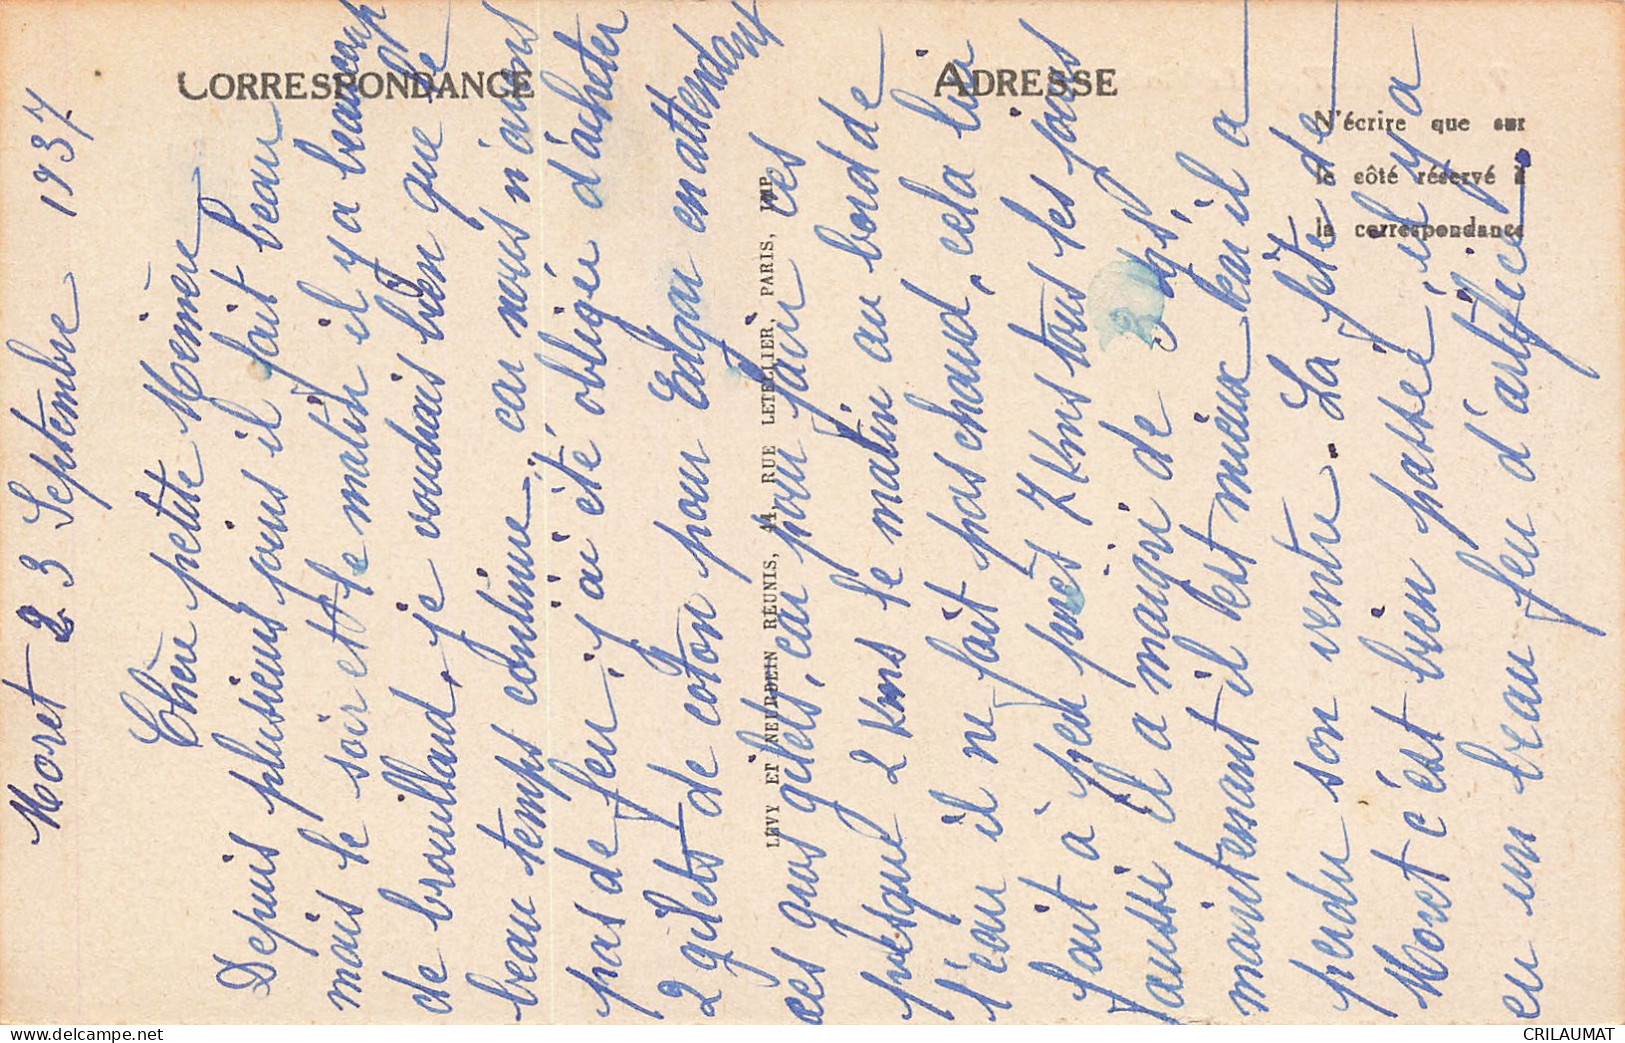 CORRESPONDANCE
ADRESSE
N'écrire que sur
le côté réservé à
la correspondance
LÉVY ET NEURDEIN RÉUNIS, 44, RUE LETELLIER, PARIS, IMP.
Moret 23 Septembre 1937
Chère petite Mémère
Depuis plusieurs jours il fait beau
mais le soir et le matin il y a beaucoup
de brouillard, je voudrais bien que le
beau temps continue, car nous n'avons
pas de feu, j'ai été obligée d'acheter
2 gilets de coton pour Edgar en attendant
ces gros gilets, car pour faire ces
presque 2 Kms le matin au bord de
l'eau il ne fait pas chaud, cela lui
fait à peu près 7 Kms tous les jours
aussi il a maigri de
maintenant il est mieux car il a
perdu son ventre. La fête de
Moret c'est bien passée, il y a
eu un beau feu d'artifice,
CRILAUMAT
delcampe.net